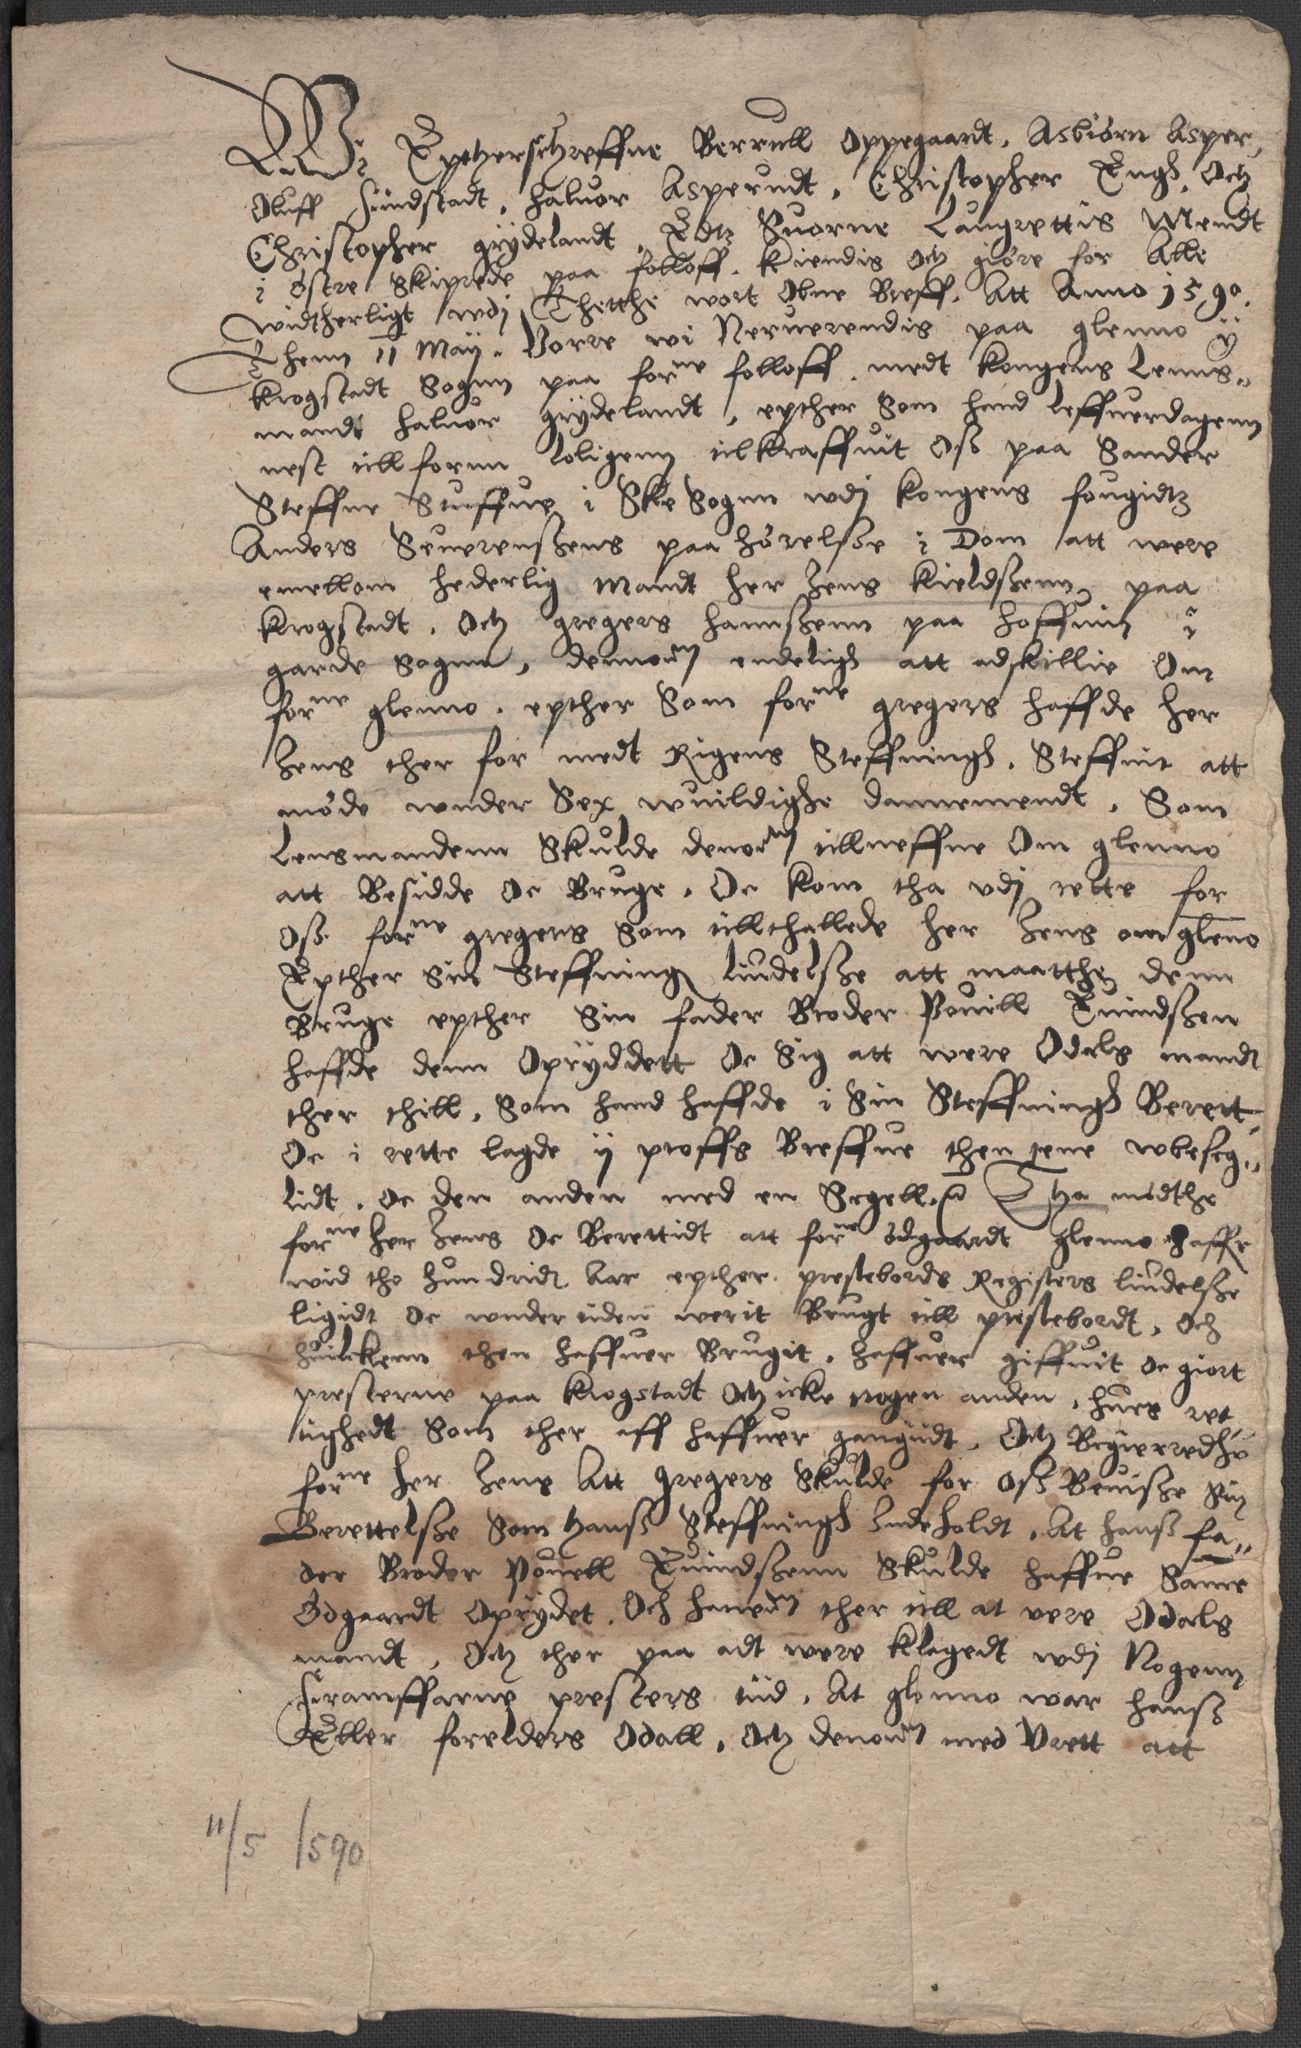 Wi Eptherschreffne Berrull Oppegaardt, Asbiörn Asper,
Oluff Sundstadt, Haluor Asperudt, Christopher Engh, Och
Christopher grÿdelandt, Edtz Suorne Laugrettis Mendt
i östre Skiprede paa folloff, kiendis och giöre for Alle
widtherligt wdj Thetthe wort Obne Breff, Att Anno 1590,
Thenn 11 Maÿ, Vorre wi Neruerendis paa glenno ÿ
krogstadt Sognn paa forne folloff, medt kongens Lenns„
mandt Haluor grÿdelandt, epther Som hand Leffuerdagenn
nest till forn loligenn tilkraffuit Oss paa Sander
Steffne Stuffue i Ske Sognn wdj kongens fougidtz
Anders Seuerenssens paa hörelsse i Dom att were
emellom hederlig Mandt her Jens kieldssenn paa
krogstadt, Och gregers hannssenn paa hoffuin i
garde Sognn, dennom endeligh att adskillie Om
forne glenno, epther Som forne gregers haffde her
Jens ther for medt Rigens Steffningh, Steffnit att
möde wnder Sex wuildighe dannemendt, Som
Lensmandenn Skulde dennom tillneffne Om glenno
att Besidde Oc Bruge, Oc kom tha vdj rette for
Oss forne gregers Som tillthallede her Jens om gleno
Epther Sin Steffning liudelsse att maatthe denn
Bruge epther Sin fader Broder Pouill Euindssen
haffde denn Oprÿddett Oc Sig att were Odels mandt
ther thill, Som hand haffde i Sin Steffningh Berett,
Oc i rette lagde ij proffs Breffue then ene wbeseg„
lidt, Oc den anden med en Segell, Tha mödthe
forne her Jens Oc Berettidt att forne ödgaardt glenno haffr
wid tho hundridt Aar epther prestebords Registers liudelsse
ligidt Oc wnder tiden werit Brugt till prestebordt, Och
huilckenn then haffuer Brugit, haffuer giffuit Oc giort
presterne paa krogstadt Och icke nogen anden, hues ret
tighedt Som ther aff haffuer gangudt, Och Begierredhe
forne her Jens Att gregers Skulde for Oss Beuisse Sin
Berettelsse Som hanss Steffningh Indeholdt, At hanss fa„
der Broder Pouell Euindssenn Skulde haffue Samme
Ödgaardt Oprÿdet, Och hannom ther till at vere Odels
mandt, Och ther paa adt were klagedt wdj Nogenn
framffarne presters tiid, At glenno war hanss
Eller forelders Odall, Och dennom med Vrett att
11/5 1590